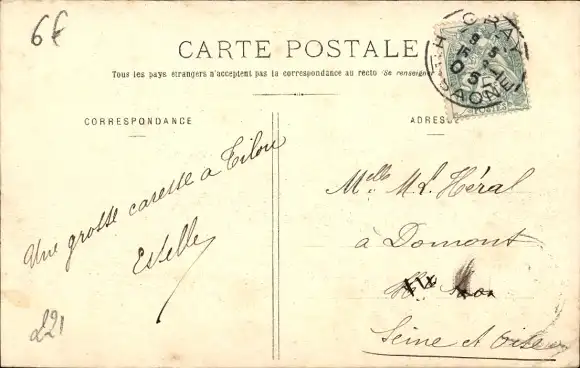 6f
CARTE POSTALE
Tous les pays étrangers n'acceptent pas la correspondance au recto (Se renseigner
CORRESPONDANCE
ADRESSE
Une grosse caresse à Tilou
Estelle
Melle M.L. Héral
à Domont
Seine et Oise
GRAY
SAÔNE
POSTES